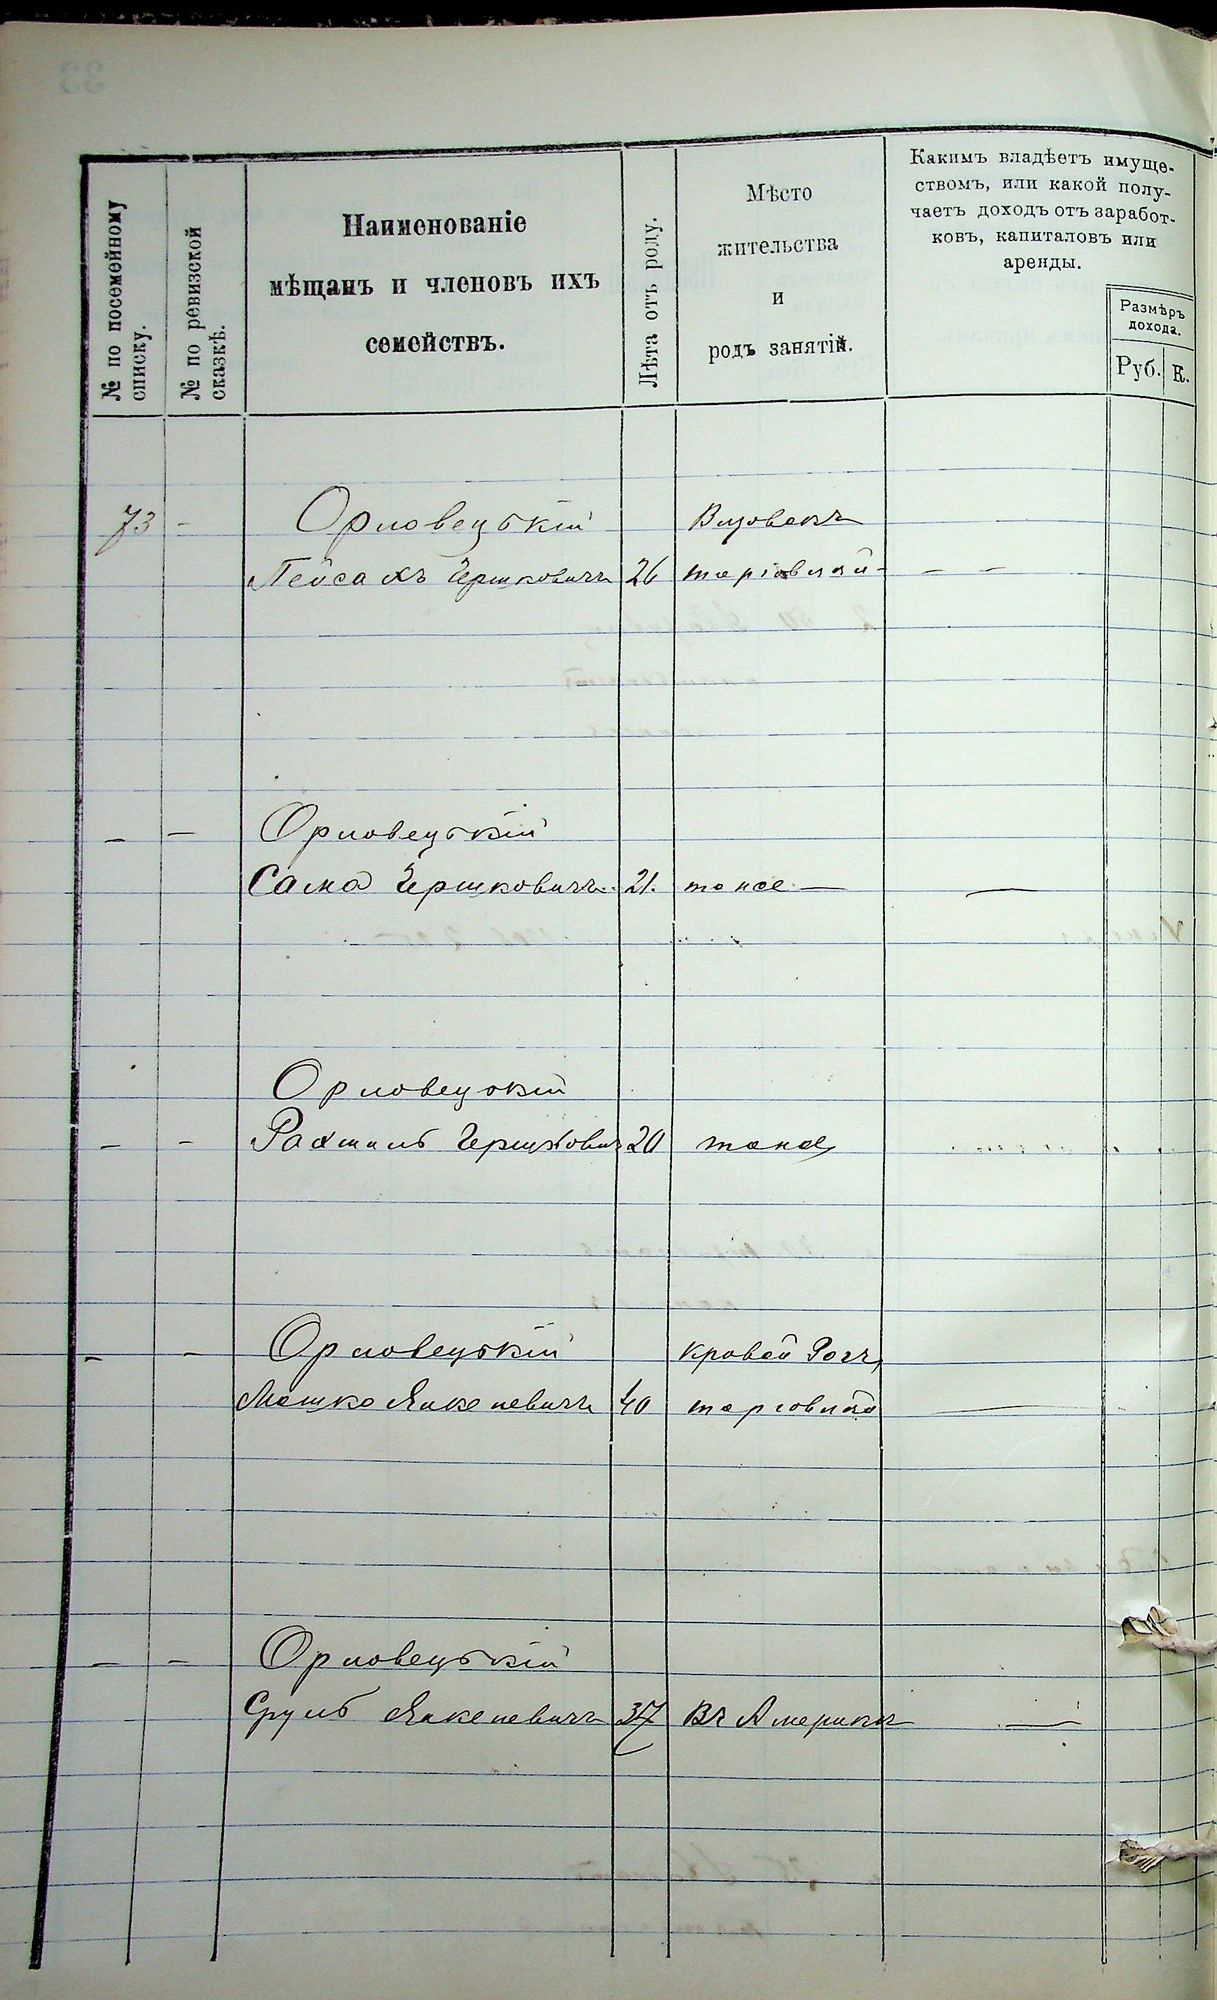 № по посемейному
списку.
№ по ревизской
сказкѣ.
Наименованіе
мѣщанъ и членовъ ихъ
семействъ.
Лѣта отъ роду.
Мѣсто
жительства
и
родъ занятій.
Какимъ владѣетъ имуще-
ствомъ, или какой полу-
чаетъ доходъ отъ заработ-
ковъ, капиталовъ или
аренды.
Размѣръ
дохода.
Руб. К.
73 - Орловецькій
Пейсахъ Гершковичъ 26 торговлей - - -
- - Орловецькій
Сама Гершковичъ 21. тоже - -
Орловецькій
- - Рахмиль Гершкович 20 тоже
- - Орловецькій Кровой Рогъ,
Мошко Янкелевичъ 40 торговлей -
- - Орловецькій
Сруль Янкелевичъ 37 Въ Америкъ -